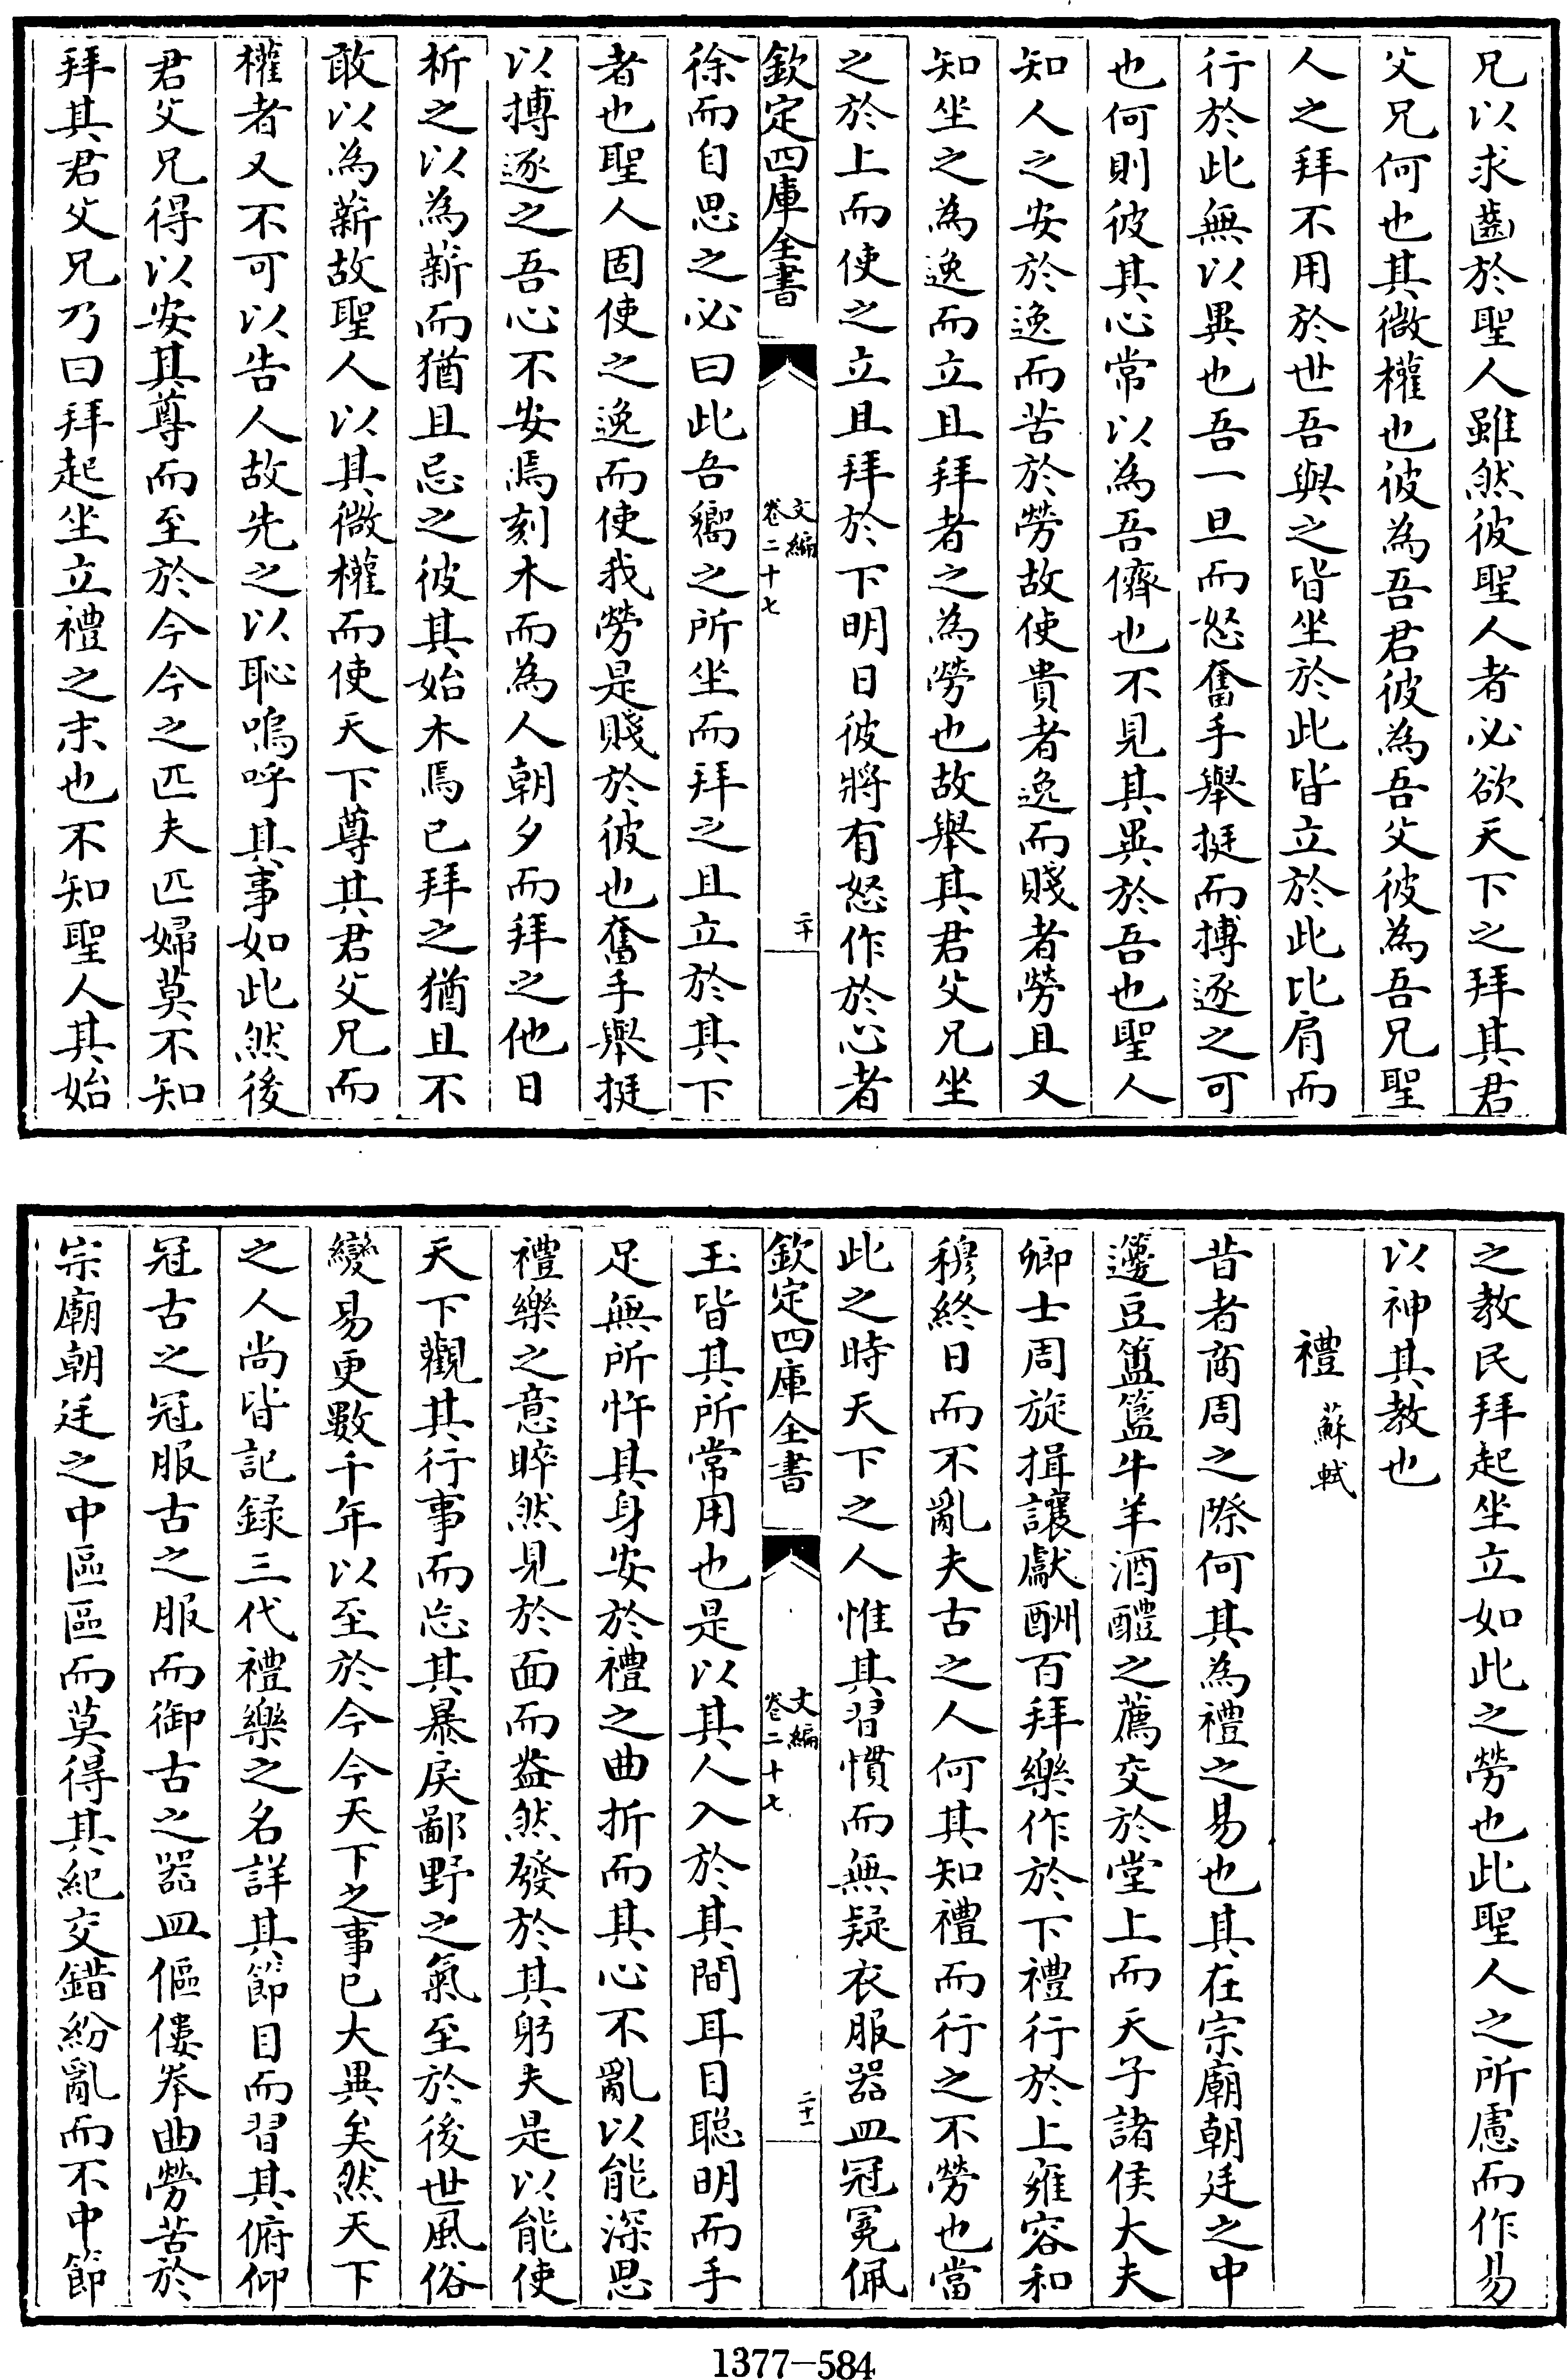 兄以求齒於聖人雖然彼聖人者必欲天下之拜其君
父兄何也其微權也彼為吾君彼為吾父彼為吾兄聖
人之拜不用於世吾與之皆坐於此皆立於此比肩而
行於此無以異也吾一旦而怒奮手舉挺而搏逐之可
也何則彼其心常以為吾儕也不見其異於吾也聖人
知人之安於逸而苦於勞故使貴者逸而賤者勞且又
知坐之為逸而立且拜者之為勞也故舉其君父兄坐
之於上而使之立且拜於下明日彼將有怒作於心者
欽定四庫全書
文編
卷二十七
二十
徐而自思之必曰此吾嚮之所坐而拜之且立於其下
者也聖人固使之逸而使我勞是賤於彼也奮手舉挺
以搏逐之吾心不安焉刻木而為人朝夕而拜之他日
析之以為薪而猶且忌之彼其始木焉已拜之猶且不
敢以為薪故聖人以其微權而使天下尊其君父兄而
權者又不可以告人故先之以恥嗚呼其事如此然後
君父兄得以安其尊而至於今今之匹夫匹婦莫不知
拜其君父兄乃曰拜起坐立禮之末也不知聖人其始
之教民拜起坐立如此之勞也此聖人之所慮而作易
以神其教也
禮 蘇軾
昔者商周之際何其為禮之易也其在宗廟朝廷之中
籩豆簠簋牛羊酒醴之薦交於堂上而天子諸侯大夫
卿士周旋揖讓獻酬百拜樂作於下禮行於上雍容和
穆終日而不亂夫古之人何其知禮而行之不勞也當
此之時天下之人惟其習慣而無疑衣服器皿冠冕佩
欽定四庫全書
文編
卷二十七
二十一
玉皆其所常用也是以其人入於其間耳目聰明而手
足無所忤其身安於禮之曲折而其心不亂以能深思
禮樂之意睟然見於面而盎然發於其躬夫是以能使
天下觀其行事而忘其暴戾鄙野之氣至於後世風俗
變易更數千年以至於今今天下之事已大異矣然天下
之人尚皆記錄三代禮樂之名詳其節目而習其俯仰
冠古之冠服古之服而御古之器皿傴僂拳曲勞苦於
宗廟朝廷之中區區而莫得其紀交錯紛亂而不中節
1377—584